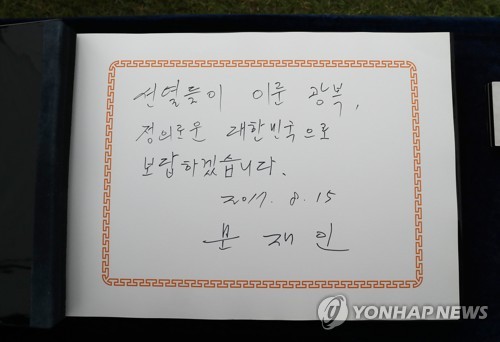 선열들이 이룬 광복,
정의로운 대한민국으로
보답하겠습니다.
2017. 8. 15
문 재 인
YONHAP NEWS